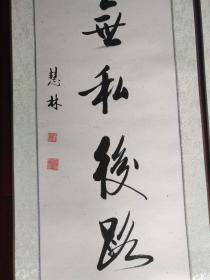 無私後路
慧林